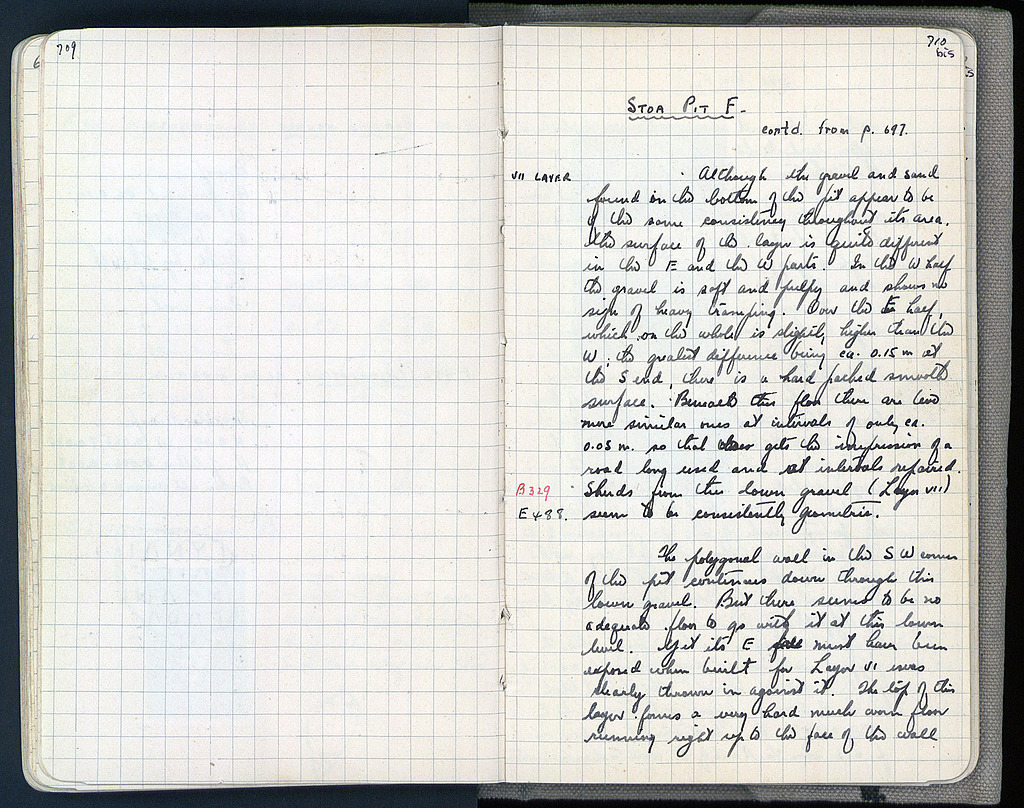 709
710
bis
STOA PIT F.
contd. from p. 697.
VII LAYER
Although the gravel and sand
found on the bottom of the pit appear to be
of the same consistency throughout its area,
the surface of the layer is quite different
in the E and the W parts. In the W half
the gravel is soft and pulpy and shows no
sign of heavy tramping. Over the E half,
which on the whole is slightly higher than the
W, the greatest difference being ca. 0.15 m at
the S end, there is a hard packed smooth
surface. Beneath this floor there are two
more similar ones at intervals of only ca.
0.05 m. so that one gets the impression of a
road long used and at intervals repaired.
B 329
Sherds from this lower gravel (Layer VII)
E 488.
seem to be consistently geometric.
The polygonal wall in the SW corner
of the pit continues down through this
lower gravel. But there seems to be no
adequate floor to go with it at this lower
level. Yet its E face must have been
exposed when built for Layer VI was
clearly thrown in against it. The top of this
layer forms a very hard much worn floor
running right up to the face of the wall